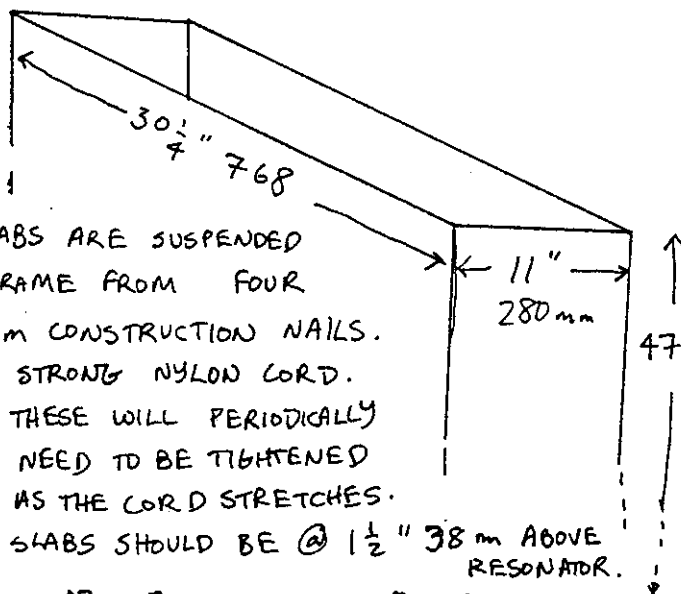 30 1/4 " 768
11 "
280 mm
47
ABS ARE SUSPENDED
RAME FROM FOUR
m CONSTRUCTION NAILS.
STRONG NYLON CORD.
THESE WILL PERIODICALLY
NEED TO BE TIGHTENED
AS THE CORD STRETCHES.
SLABS SHOULD BE @ 1 1/2 " 38 m ABOVE
RESONATOR.